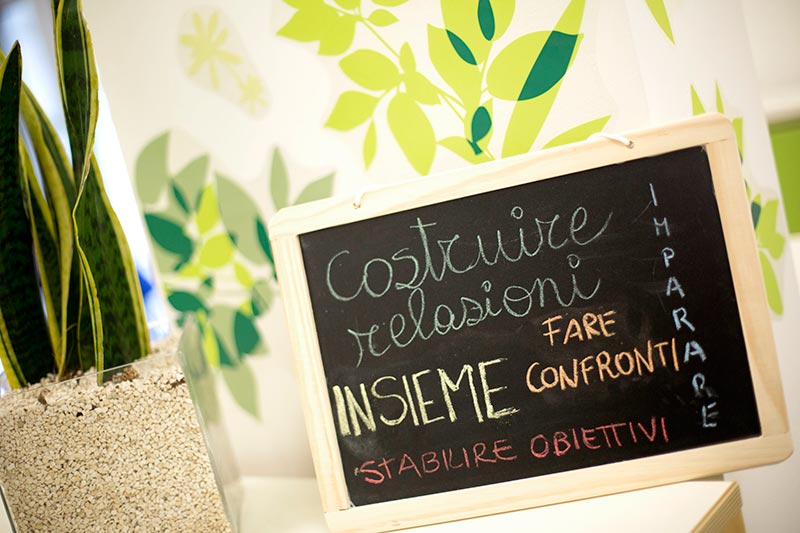 Costruire
relasioni
FARE
CONFRONTI
INSIEME
STABILIRE OBIETTIVI
IMPARARE